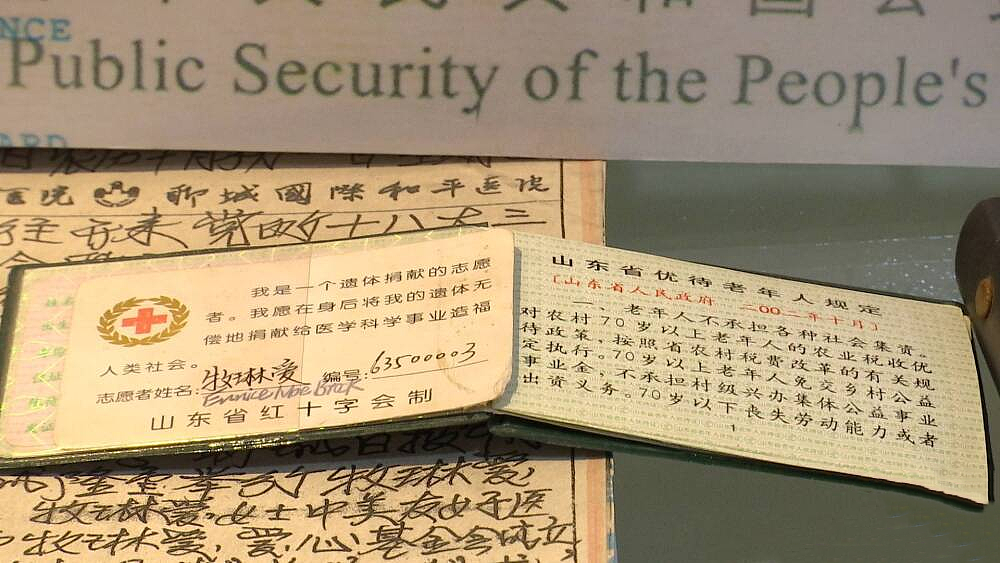 NCE
Public Security of the People's
ARD
医院 聊城國際和平医院
我是一个遗体捐献的志愿
者。我愿在身后将我的遗体无
偿地捐献给医学科学事业造福
人类社会。
志愿者姓名:牧琳爱 编号:63500003
Eunice Moe Brock
山东省红十字会制
山东省优待老年人规定
(山东省人民政府 二00二年十月)
一、老年人不承担各种社会集资。
对农村70岁以上老年人的农业税收优
待政策,按照省农村税费改革的有关规
定执行。70岁以上老年人免交乡村公益
事业金,不承担村级兴办集体公益事业
出资义务。70岁以下丧失劳动能力或者
1
隆重举行牧琳爱
牧琳爱女士中美友好医
牧琳爱,爱心基金会成立